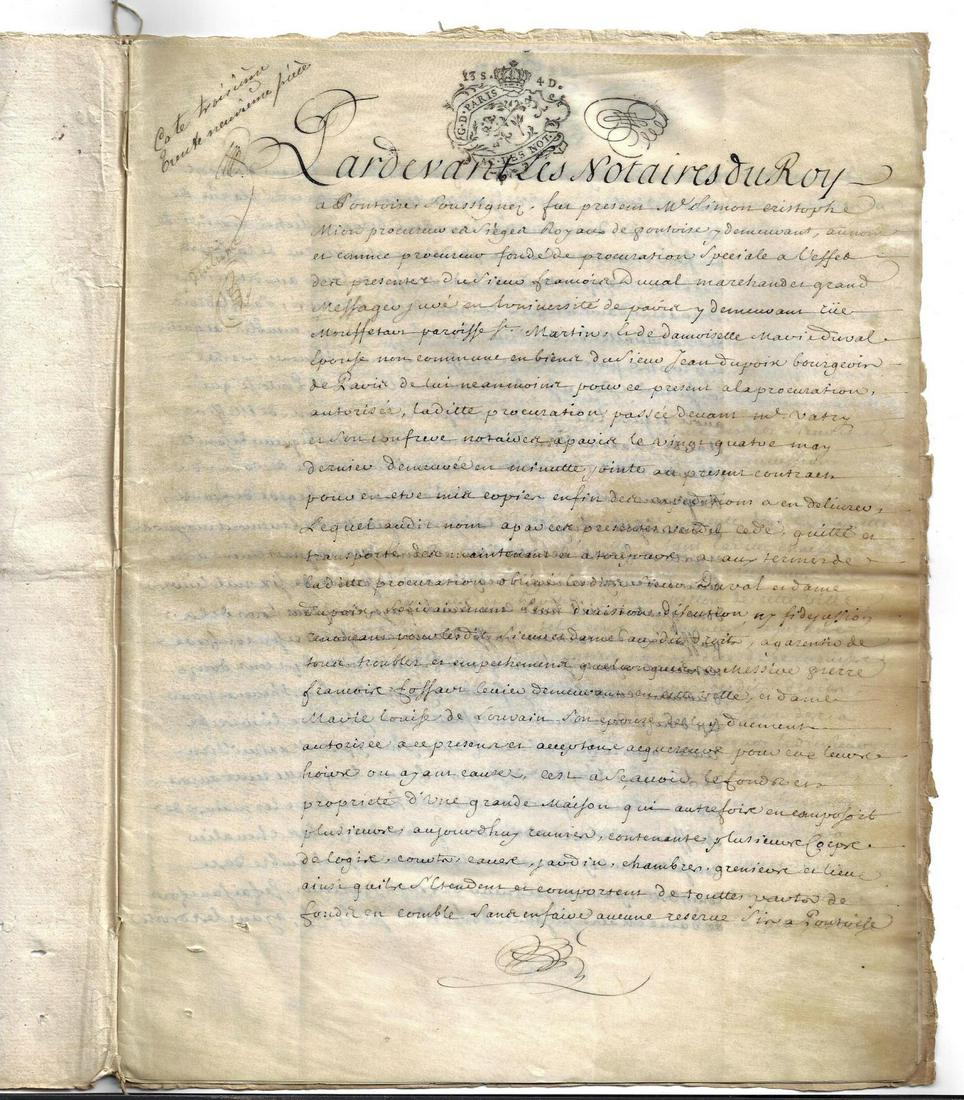 Cote troisième
trente neuvieme pièce
13 S. 4 D.
G. D. PARIS
DES NOT.
Pardevant Les Notaires du Roy
a Pontoise Soussignez, fut present Me Simon cristophe
procureur es Sieges Royaux de pontoise y demeurant, au nom
et comme procureur fondé de procuration Speciale a l'effet
des presentes du Sieur françois Duval marchand et grand
Messager juré en Lvniversité de paris y demeurant rüe
Mouffetart paroisse St. Martin, & de damoiselle Marie duval
Epouse non commune en biens du Sieur Jean dupoix bourgeois
de Paris de lui neanmoins pour ce present a la procuration,
autorisée, laditte procuration passée devant me. Vatry
et Son confrere notaires a paris le vingt quatre may
dernier demeurée en minutte jointe au present contract
pour en etre mis copies enfin des expeditions a en delivrer,
Lequel audit nom a par ces presentes vendu cedé, quitté et
transporté des maintenant a toujours, & aux termes de
laditte procuration obligé lesdits Sieur Duval et dame
Dupoix Solidairement Sans division, discution ny fidejusion
renonceant pour lesdits Sieur et dame audit droit, a garentir de
tous troubles et empechemens quelconques a Messire pierre
françois demeurant en cette ville, et dame
Marie Louise de Louvain Son epouse de luy duement
autorisée a ce present et acceptans acquereurs pour eux leurs
hoirs ou ayant cause, c'est a Sçavoir le fonds et
propriété d'Une grande Maison qui autrefois en composoit
plusieures, aujourdhuy reunies, contenante plusieurs Corps
de logis, courts, caves, jardin, chambres, greniers et lieux
ainsi qu'ils S'Etendent et comportent de touttes parts de
fonds en comble Sans en faire aucune reserve Sis a Pontoise